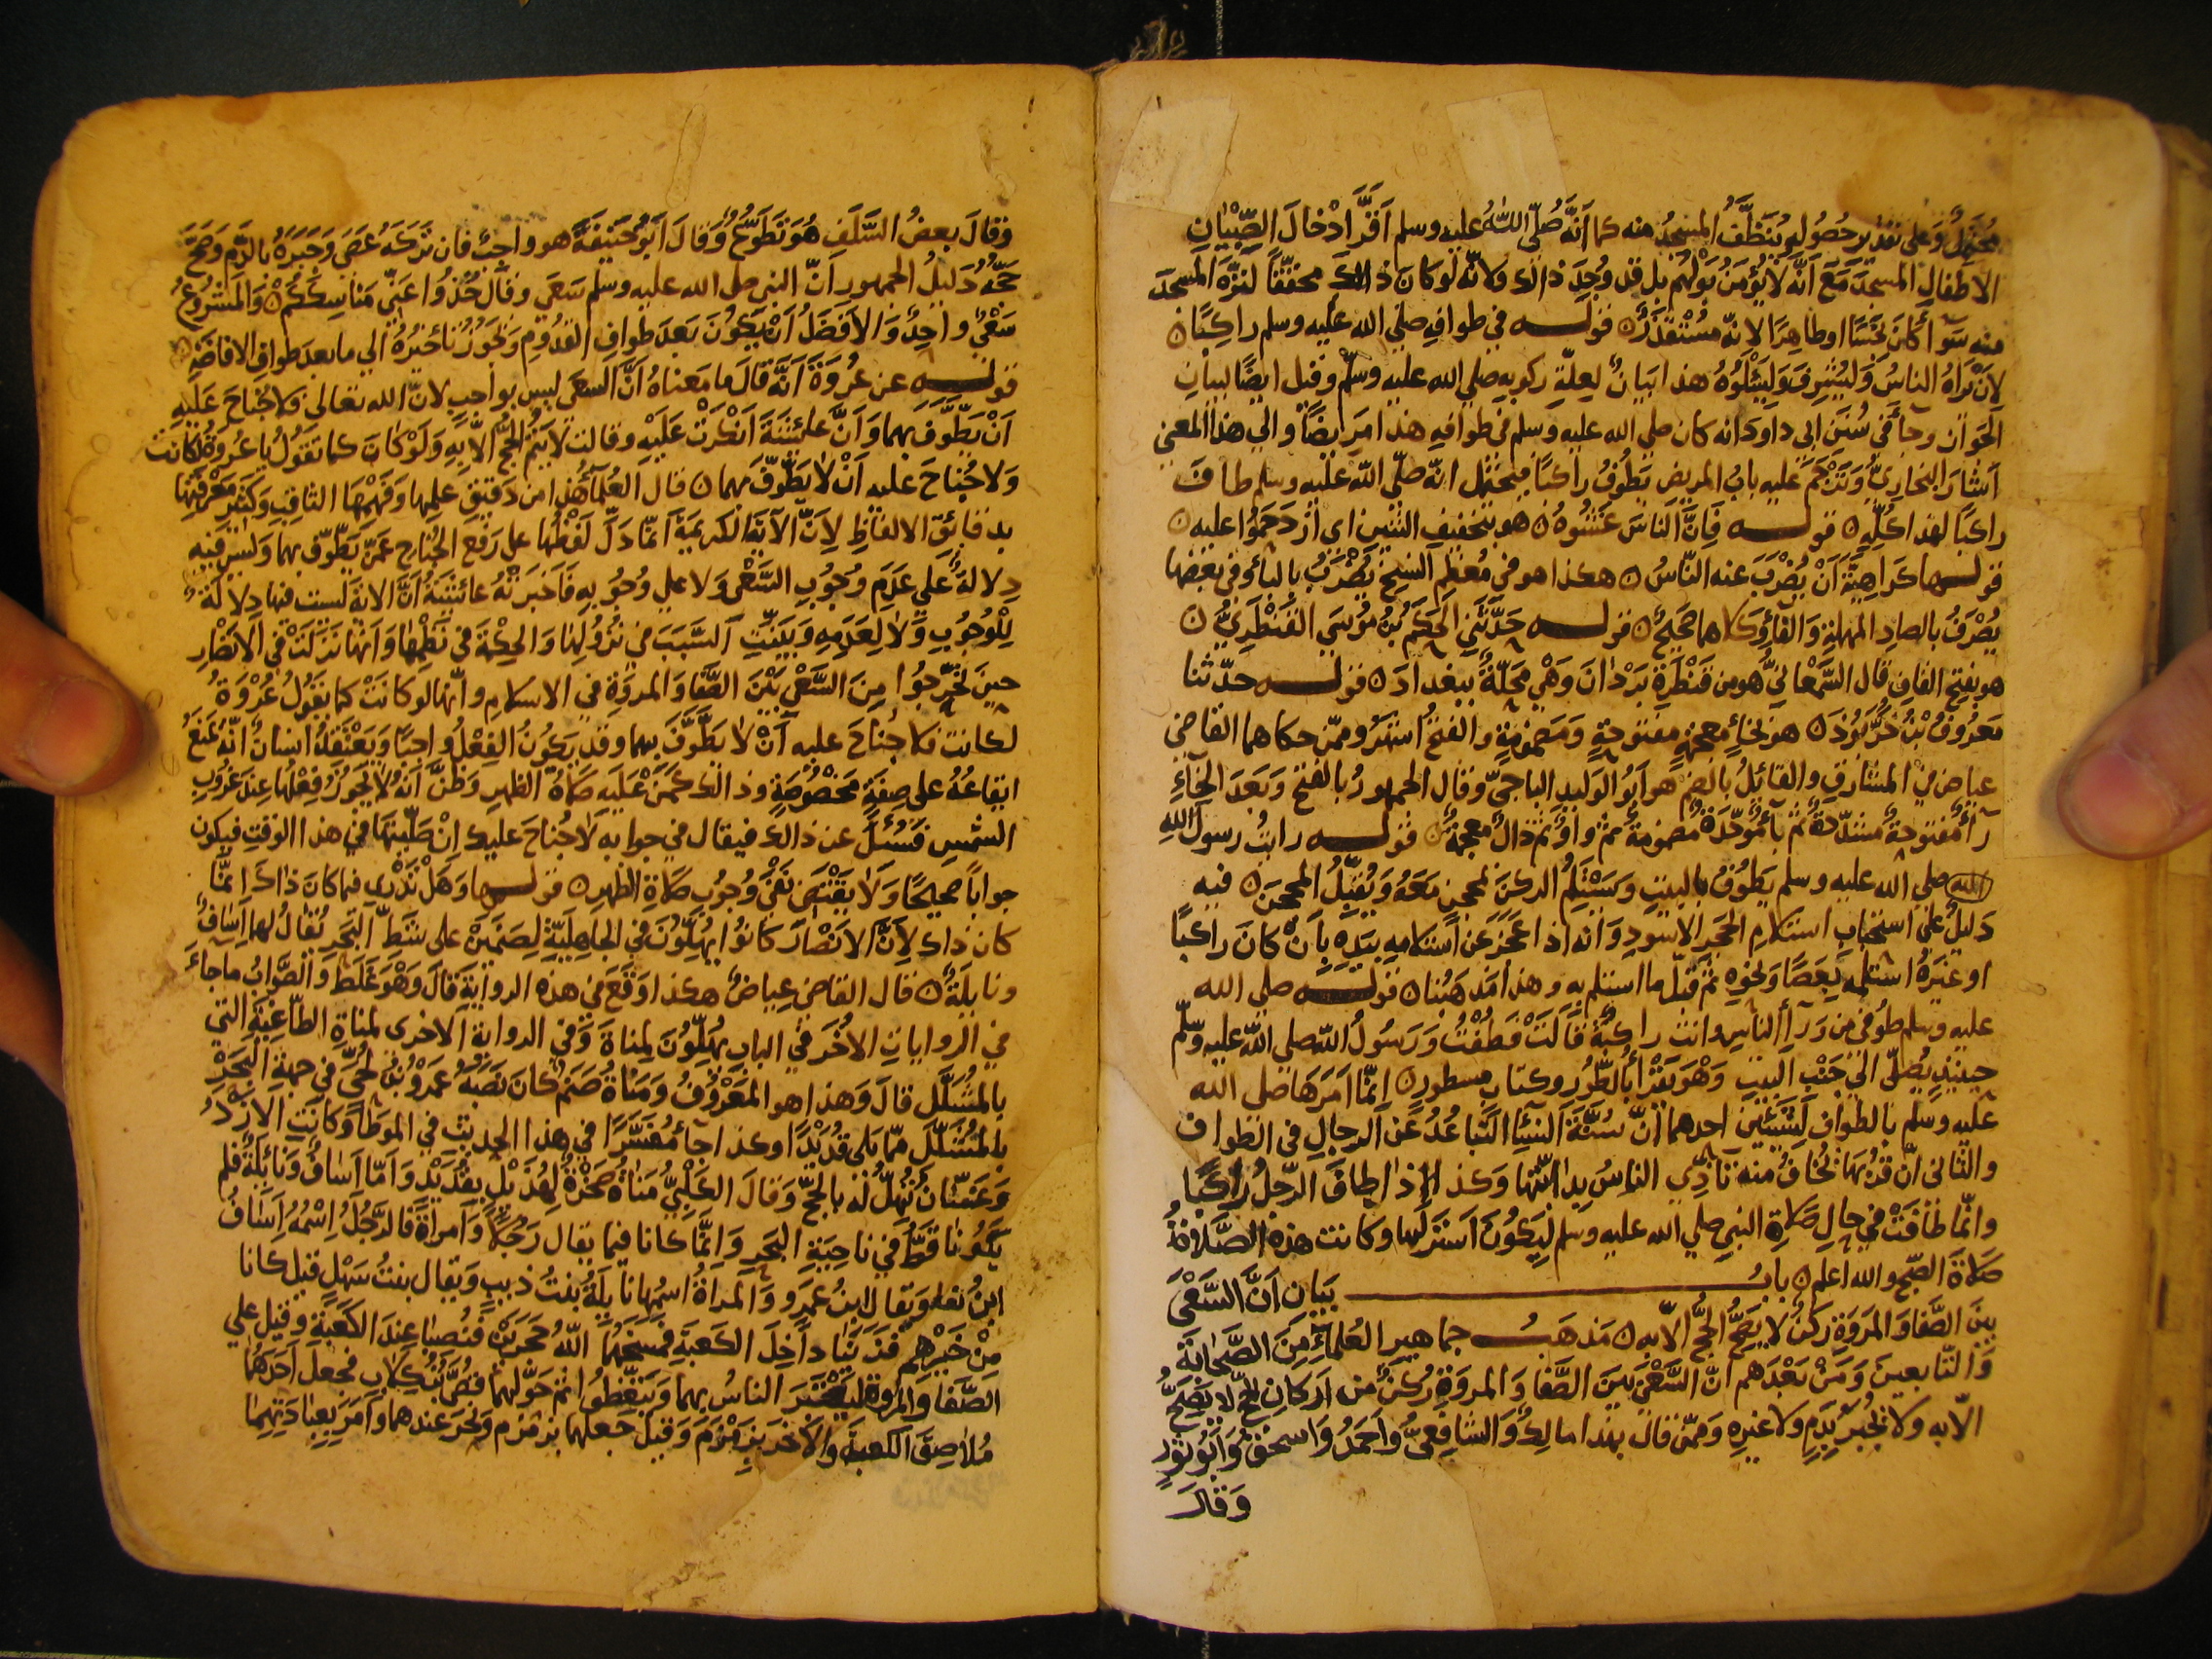 محتمل وعلى تقدير حصوله ينظف المسجد منه كما أنه صلى الله عليه وسلم أقر ادخال الصبيان
الاطفال المسجد مع أنه لا يؤمن بولهم بل قد وجد ذالك ولانه لو كان ذالك محققا لنزه المسجد
منه سوآ أكان نجسا او طاهرا لانه مستقذر قوله في طوافه صلي الله عليه وسلم راكبا
لأن يراه الناس وليشرف وليسئلوه هذا بيان لعلة ركوبه صلي الله عليه وسلم وقيل ايضا لبيان
الجواز وجآ في سنن ابي داود انه كان صلي الله عليه وسلم في طوافه هذا مريضا والي هذا المعني
اشار البخاري وترجم عليه باب المريض يطوف راكبا فيحتمل انه صلى الله عليه وسلم طاف
راكبا لهذا كله قوله فان الناس غشوه هو بتخفيف الشين اى ازدحموا عليه
قولها كراهية أن يضرب عنه الناس هكذا هو في معظم النسخ يضرب بالبأ وفي بعضها
يصرف بالصاد المهملة والفأ وكلاهما صحيح قوله حدثني الحكم بن موسى القنطري
هو بفتح القاف قال السمعاني هو من قنطرة بردان وهي محلة ببغداد قوله حدثنا
معروف بن خربوذ هو بخآء معجمة مفتوحة ومضمومة والفتح اشهر وممن حكاهما القاضي
عياض في المشارق والقائل بالضم هو أبو الوليد الباجي وقال الجمهور بالفتح وبعد الخآء
رآ مفتوحة مشددة ثم بآ موحدة مضمومة ثم واو ثم ذال معجمة قوله رايت رسول الله
الله صلى الله عليه وسلم يطوف بالبيت ويستلم الركن بمحجن معه ويقبل المحجن فيه
دليل على استحباب استلام الحجر الاسود وانه اذا عجز عن استلامه بيده بأن كان راكبا
او غيره استلمه بعصا ونحوه ثم قبل ما استلم به وهذا مذهبنا قوله صلى الله
عليه وسلم طوفي من ورآ الناس وانت راكبة قالت فطفت ورسول الله صلى الله عليه وسلم
حينئذ يصلي الي جنب البيت وهو يقرأ بالطور وكتاب مسطور إنما امرها صلى الله
عليه وسلم بالطواف لشيئين احدهما ان سنة النسآ التباعد عن الرجال في الطواف
والثاني ان قربها يخاف منه تأذي الناس بدابتها وكذا إذا طاف الرجل راكبا
وانما طافت في حال صلاة النبي صلي الله عليه وسلم ليكون استر لها وكانت هذه الصلاة
صلاة الصبح والله اعلم باب بيان أن السعى
بين الصفا والمروة ركن لا يصح الحج الا به مذهب جماهير العلمآء من الصحابة
والتابعين ومن بعدهم ان السعي بين الصفا والمروة ركن من اركان الحج لا يصح
الا به ولا يجبر بدم ولا غيره وممن قال بهذا مالك والشافعي وأحمد واسحق وأبو ثور
وقال
وقال بعض السلف هو تطوع وقال أبو حنيفة هو واجب فان تركه عصى وجبره بالدم وصح
حجه دليل الجمهور ان النبي صلى الله عليه وسلم سعي وقال خذوا عني مناسككم والمشروع
سعي واحد والافضل ان يكون بعد طواف القدوم ويجوز تأخيره الي ما بعد طواف الافاضة
قوله عن عروة أنه قال ما معناه أن السعي ليس بواجب لان الله تعالى قال فلا جناح عليه
أن يطوف بهما وأن عائشة أنكرت عليه وقالت لا يتم الحج الا به ولو كان كما تقول يا عروة لكانت
ولا جناح عليه أن لا يطوف بهما قال العلمآ هذا من دقيق علمها وفهمها الثاقب وكثير معرفتها
بدقايق الالفاظ لأن الآية الكريمة انما دل لفظها على رفع الجناح عمن يطوف بهما وليس فيه
دلالة على عدم وجوب السعي ولا على وجوبه فأخبرته عائشة أن الاية ليست فيها دلالة
للوجوب ولا لعدمه وبينت السبب في نزولها والحكمة في نظمها وأنها نزلت في الانصار
حين تحرجوا من السعي بين الصفا والمروة في الاسلام وأنها لو كانت كما يقول عروة
لكانت فلا جناح عليه أن لا يطوف بهما وقد يكون الفعل واجبا ويعتقد انسان انه يمنع
ايقاعه على صفة مخصوصة وذالك كمن عليه صلاة الظهر وظن أنه لا يجوز فعلها عند غروب
الشمس فسئل عن ذالك فيقال في جوابه لا جناح عليك ان صليتها في هذا الوقت فيكون
جوابا صحيحا ولا يقتضي نفي وجوب صلاة الظهر قولها وهل تدري فيما كان ذاك إنما
كان ذاك لأن الانصار كانوا يهلون في الجاهلية لصنمين على شط البحر يقال لهما إساف
ونايلة قال القاضي عياض هكذا وقع في هذه الرواية قال وهو غلط والصواب ما جاء
في الروايات الأخر في الباب يهلون لمناة وفي الرواية الاخرى لمناة الطاغية التي
بالمشلل قال وهذا هو المعروف ومناة صنم كان نصبه عمرو بن لحي في جهة البحر
بالمشلل مما يلي قديدا وكذا جآ مفسرا في هذا الحديث في الموطأ وكانت الازد
وغسان تهل له بالحج وقال الكلبي مناة صخرة لهذيل بقديد وأما أساف ونائلة فلم
يكونا قط في ناحية البحر وإنما كانا فيما يقال رجلا وامرأة فالرجل إسمه إساف
ابن بقاء ويقال ابن عمرو والمرأة اسمها نايلة بنت ذيب ويقال بنت سهل قيل كانا
من جرهم فزنيا داخل الكعبة فمسخهما الله حجرين فنصبا عند الكعبة وقيل على
الصفا والمروة ليعتبر الناس بهما ويتعظوا ثم حولهما قصي بن كلاب فجعل احدهما
ملاصق الكعبة والآخر بزمزم وقيل جعلهما بزمزم ونحر عندهما وأمر بعبادتهما